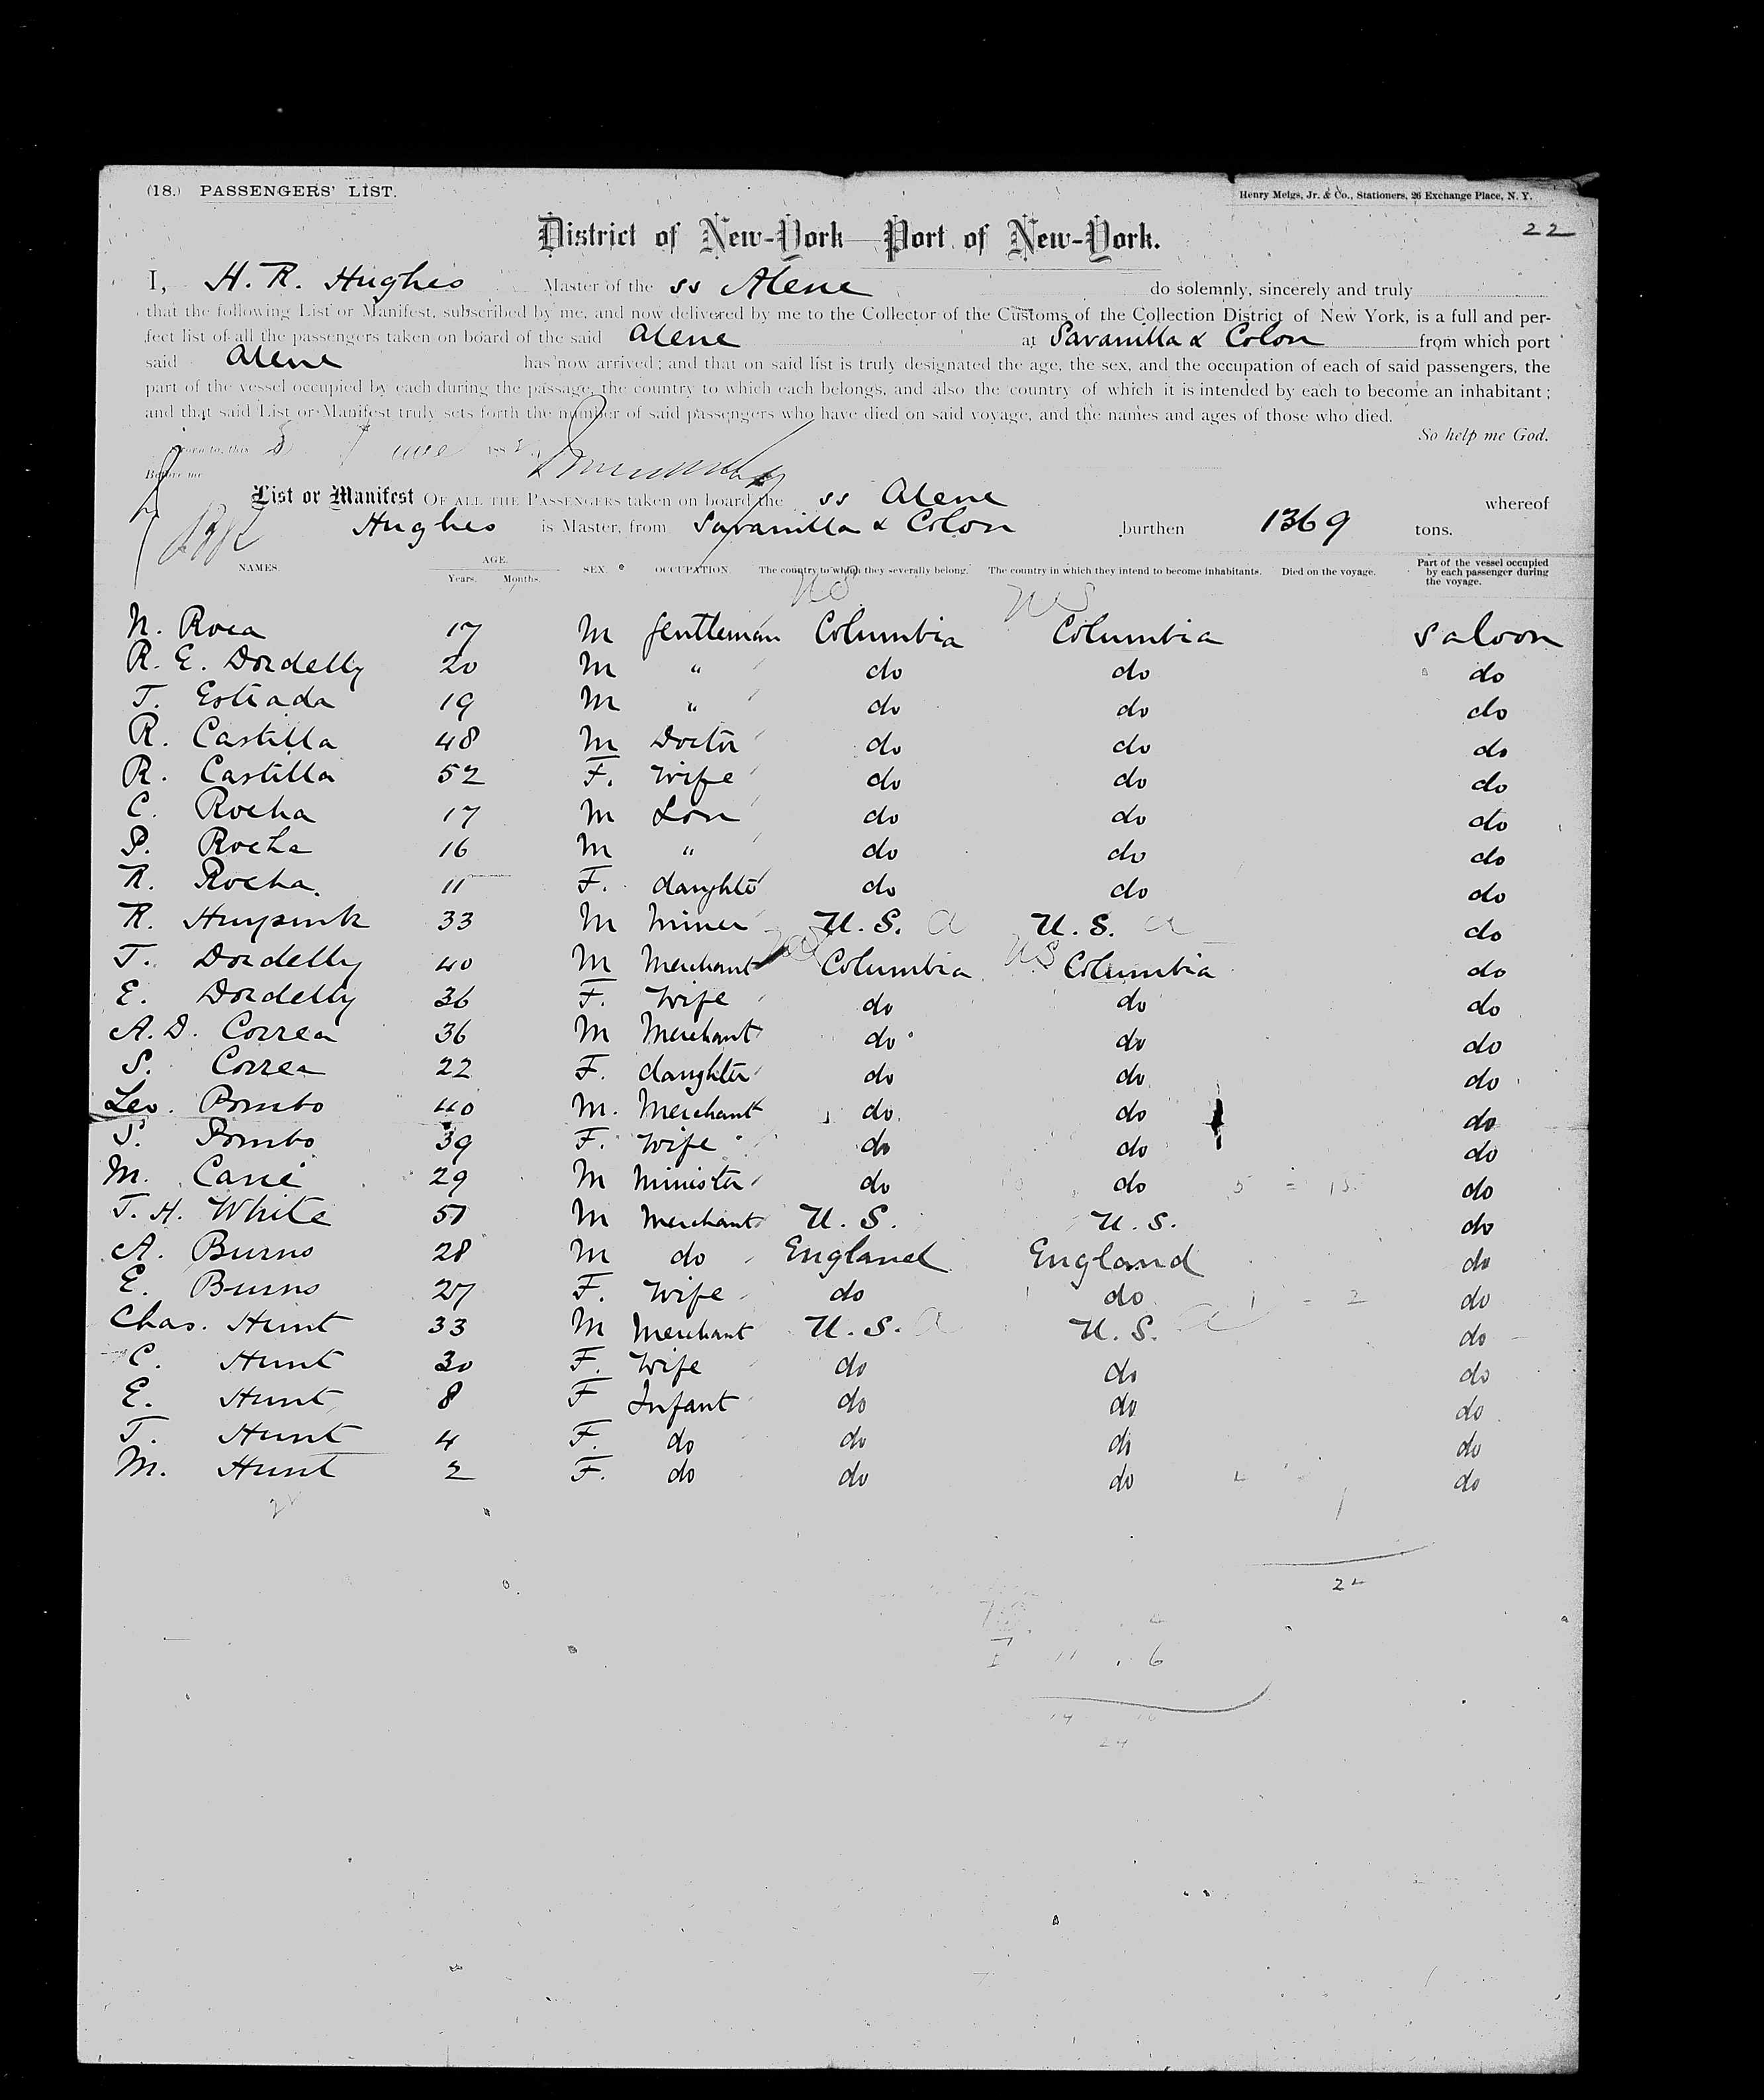 (18.) PASSENGERS' LIST.
Henry Meigs, Jr. & Co., Stationers, 26 Exchange Place, N. Y.
District of New-York—Port of New-York.
22
I, H. R. Hughes Master of the ss Alene do solemnly, sincerely and truly
that the following List or Manifest, subscribed by me, and now delivered by me to the Collector of the Customs of the Collection District of New York, is a full and per-
fect list of all the passengers taken on board of the said Alene at Savanilla & Colon from which port
said Alene has now arrived; and that on said list is truly designated the age, the sex, and the occupation of each of said passengers, the
part of the vessel occupied by each during the passage, the country to which each belongs, and also the country of which it is intended by each to become an inhabitant;
and that said List or Manifest truly sets forth the number of said passengers who have died on said voyage, and the names and ages of those who died.
So help me God.
Sworn to, this June 188
Before me
List or Manifest OF ALL THE PASSENGERS taken on board the ss Alene whereof
Hughes is Master, from Savanilla & Colon burthen 1369 tons.
NAMES. AGE. Years. Months. SEX. OCCUPATION. The country to which they severally belong. The country in which they intend to become inhabitants. Died on the voyage. Part of the vessel occupied by each passenger during the voyage.
US US
N. Roca 17 M Gentleman Columbia Columbia saloon
R. E. Dordelly 20 M " do do do
T. Estrada 19 M " do do do
R. Castilla 48 M Doctor do do do
R. Castilla 52 F. Wife do do do
C. Rocha 17 M Son do do do
P. Rocha 16 M " do do do
R. Rocha. 11 F. daughter do do do
R. 33 M Miner U.S. a U.S. a do
T. Dordelly 40 M Merchant Columbia US Columbia do
E. Dordelly 36 F. Wife do do do
A. D. Correa 36 M Merchant do do do
S. Correa 22 F. daughter do do do
Leo. Pombo 40 M. Merchant do do do
S. Pombo 39 F. Wife do do do
M. Cané 29 M Minister do do do
T. H. White 51 M Merchant U.S. U.S. do
A. Burns 28 M do England England do
E. Burns 27 F. Wife do do 1 = 2 do
Chas. Hunt 33 M Merchant U.S. a U.S. a do
C. Hunt 30 F. Wife do do do
E. Hunt 8 F Infant do do do
T. Hunt 4 F. do do do do
M. Hunt 2 F. do do do do
24
6